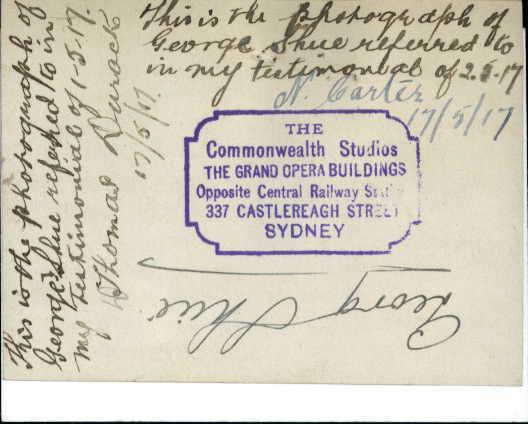 This is the photograph of
George Shue referred to
in my testimonial of 2.5.17
N. Carter
17/5/17
THE
Commonwealth Studios
THE GRAND OPERA BUILDINGS
Opposite Central Railway Station
337 CASTLEREAGH STREET
SYDNEY
This is the photograph of
George Shue referred to in
my testimonial of 1-5-17.
Thomas Durack
17/5/17
Georg Shue